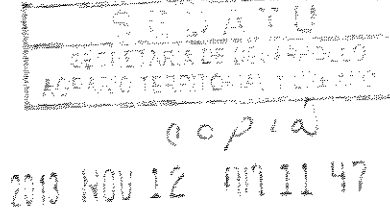 SEDATU
SECRETARIA DE DESARROLLO
AGRARIO TERRITORIAL Y URBANO
copia
2013 NOV 12 AM 11 47